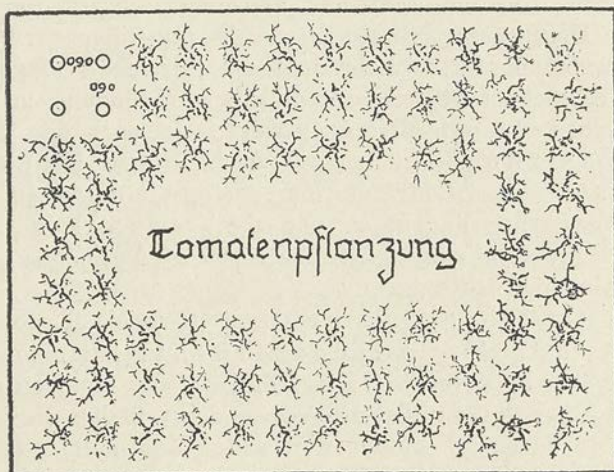 0,90
0,90
Tomatenpflanzung